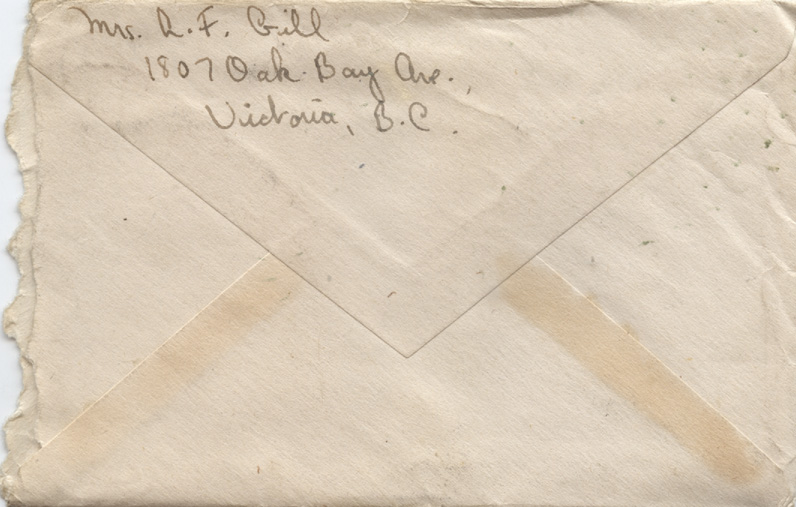 Mrs. R. F. Gill
1807 Oak Bay Ave.,
Victoria, B.C.